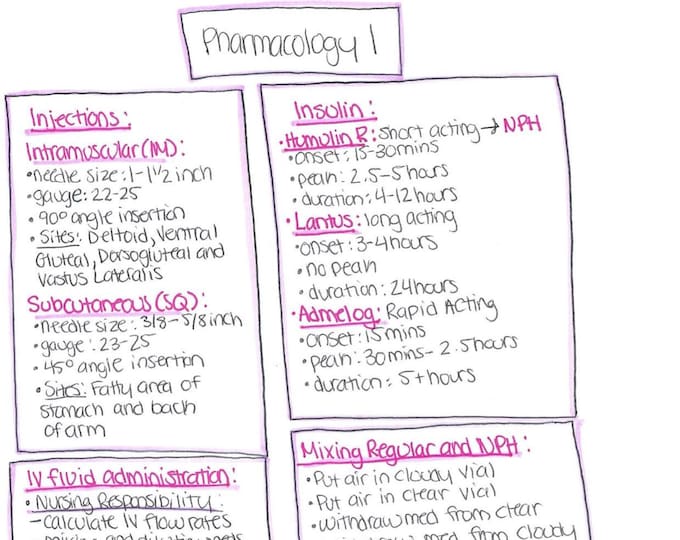 Pharmacology 1
Injections:
Intramuscular (IM):
•needle size: 1-1 1/2 inch
•gauge: 22-25
• 90° angle insertion
• Sites: Deltoid, Ventral
Gluteal, Dorsogluteal and
Vastus Lateralis
Subcutaneous (SQ):
•Needle size: 3/8-5/8 inch
•gauge: 23-25
• 45° angle insertion
•Sites: Fatty area of
stomach and back
of arm
Insulin:
•Humulin R: short acting → NPH
•onset: 15-30mins
•peak: 2.5-5hours
•duration: 4-12hours
•Lantus: long acting
•onset: 3-4hours
•no peak
•duration: 24hours
•Admelog: Rapid Acting
•onset: 15mins
•peak: 30mins- 2.5hours
•duration: 5+hours
IV fluid administration:
• Nursing Responsibility:
-calculate IV flow rates
Mixing Regular and NPH:
•Put air in cloudy vial
•Put air in clear vial
•withdraw med from clear
med from cloudy